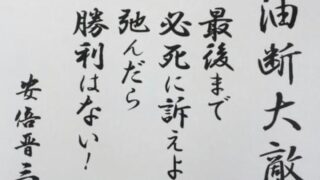 油断大敵
最後まで
必死に訴えよ
弛んだら
勝利はない!
安倍晋三